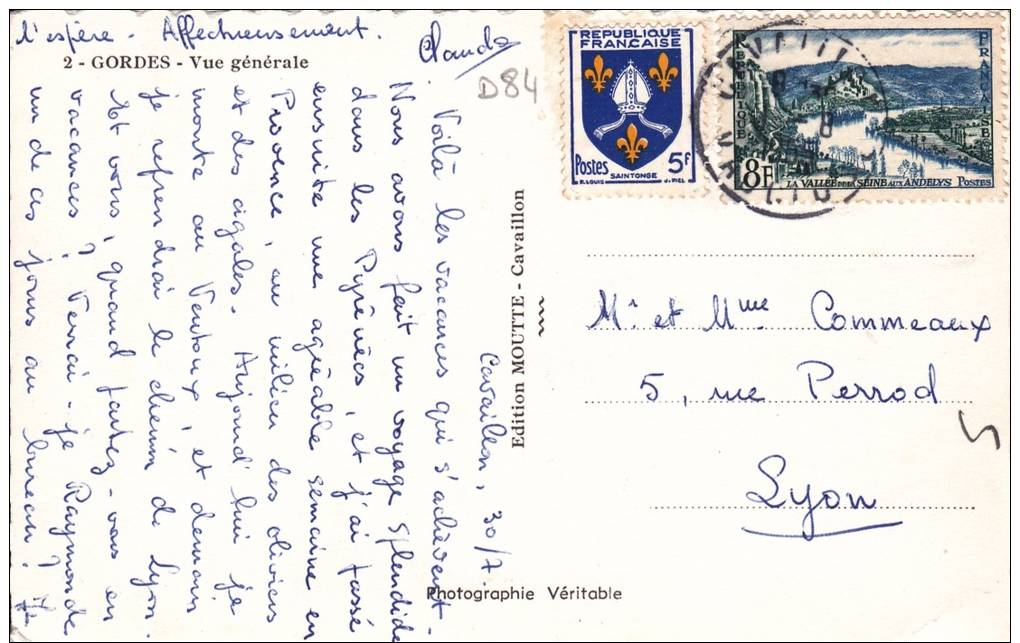 2 - GORDES - Vue générale
D84
Cavaillon, 30/7
Voilà les vacances qui s'achèvent.
Nous avons fait un voyage splendide
dans les Pyrénées, et j'ai passé
ensuite une agréable semaine en
Provence, au milieu des oliviers
et des cigales. Aujourd'hui je
monte au Ventoux, et demain
je reprendrai le chemin de Lyon.
Et vous, quand partez-vous en
vacances ? Verrai-je Raymonde
un de ces jours au bureau ? Je
l'espère. Affectueusement.
Claude
Edition MOUTTE - Cavaillon
Photographie Véritable
REPUBLIQUE
FRANÇAISE
Postes 5F
SAINTONGE
R. LOUIS J. PIEL
REPUBLIQUE
FRANÇAISE
8F
LA VALLÉE DE LA SEINE AUX ANDELYS POSTES
Mr et Mme Commeaux
5, rue Perrod
Lyon